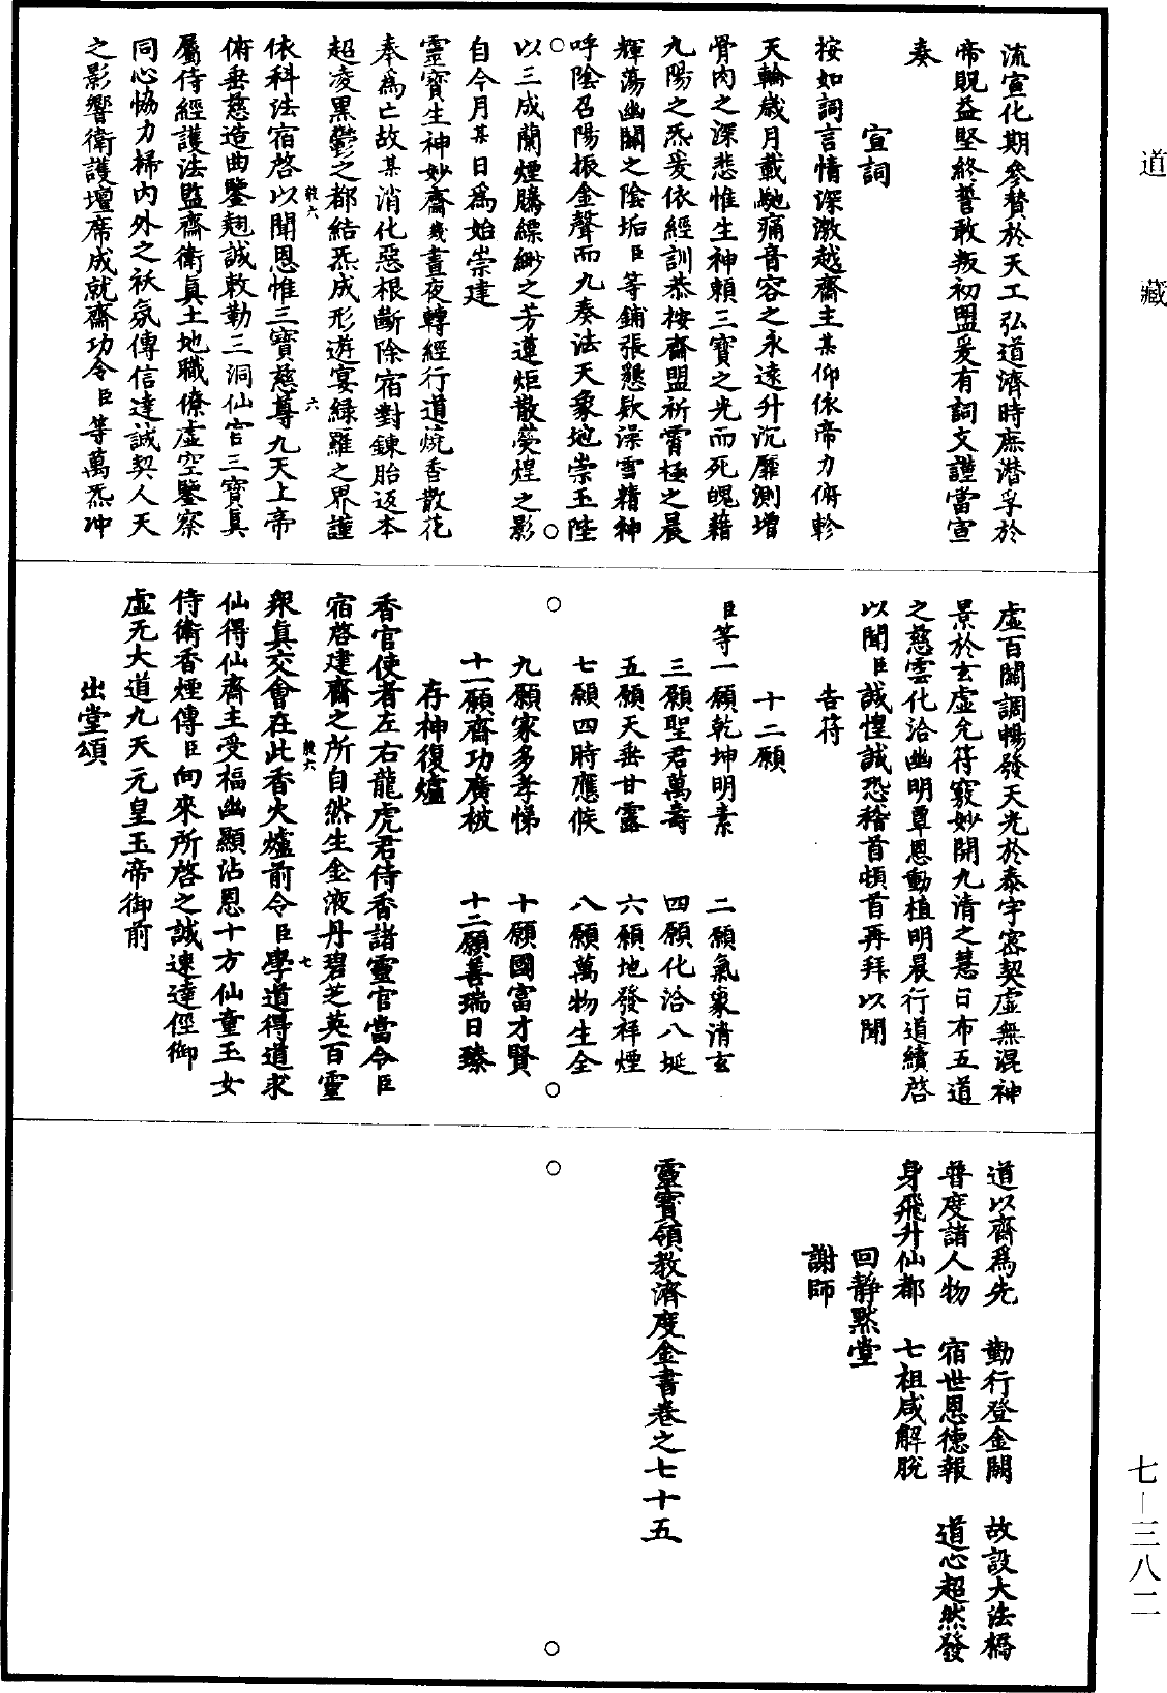 道藏
流宣化期參贊於天工弘道濟時庶潛孚於
帝貺益堅終誓敢叛初盟爰有詞文謹當宣
奏
宣詞
按如詞言情深激越齋主某仰依帝力俯軫
天輪歲月載馳痛音容之永遠升沉靡測增
骨肉之深悲惟生神賴三寶之光而死魄藉
九陽之炁爰依經訓恭按齋盟祈霄極之晨
輝蕩幽關之陰垢臣等鋪張懇款澡雪精神
呼陰召陽振金聲而九奏法天象地崇玉陛
以三成蘭煙騰縹緲之芳蓮炬散熒煌之影
自今月某日為始崇建
靈寶生神妙齋幾晝夜轉經行道燒香散花
奉為亡故某消化惡根斷除宿對鍊胎返本
超凌黑鬱之都結炁成形遊宴綠羅之界謹
依科法宿啓以聞恩惟三寶慈尊九天上帝
俯垂慈造曲鑒翹誠敕勒三洞仙官三寶真
屬侍經護法監齋衛真土地職僚虛空鑒察
同心恊力掃內外之袄氛傳信達誠契人天
之影響衛護壇席成就齋功令臣等萬炁冲
虛百關調暢發天光於泰宇密契虛無混神
景於玄虛允符竅妙開九清之慧日布五道
之慈雲化洽幽明覃恩動植明晨行道續啓
以聞臣誠惶誠恐稽首頓首再拜以聞
告符
十二願
臣等一願乾坤明素 二願氣象清玄
三願聖君萬壽 四願化洽八埏
五願天垂甘露 六願地發祥煙
七願四時應候 八願萬物生全
九願家多孝悌 十願國富才賢
十一願齋功廣被 十二願善瑞日臻
存神復爐
香官使者左右龍虎君侍香諸靈官當令臣
宿啓建齋之所自然生金液丹碧芝英百靈
衆真交會在此香火爐前令臣學道得道求
仙得仙齋主受福幽顯沾恩十方仙童玉女
侍衛香煙傳臣向來所啓之誠速達徑御
虛无大道九天元皇玉帝御前
出堂頌
道以齋為先 勤行登金闕 故設大法橋
普度諸人物 宿世恩德報 道心超然發
身飛升仙都 七祖咸解脫
回靜默堂
謝師
靈寶領教濟度金書卷之七十五
七—三八二